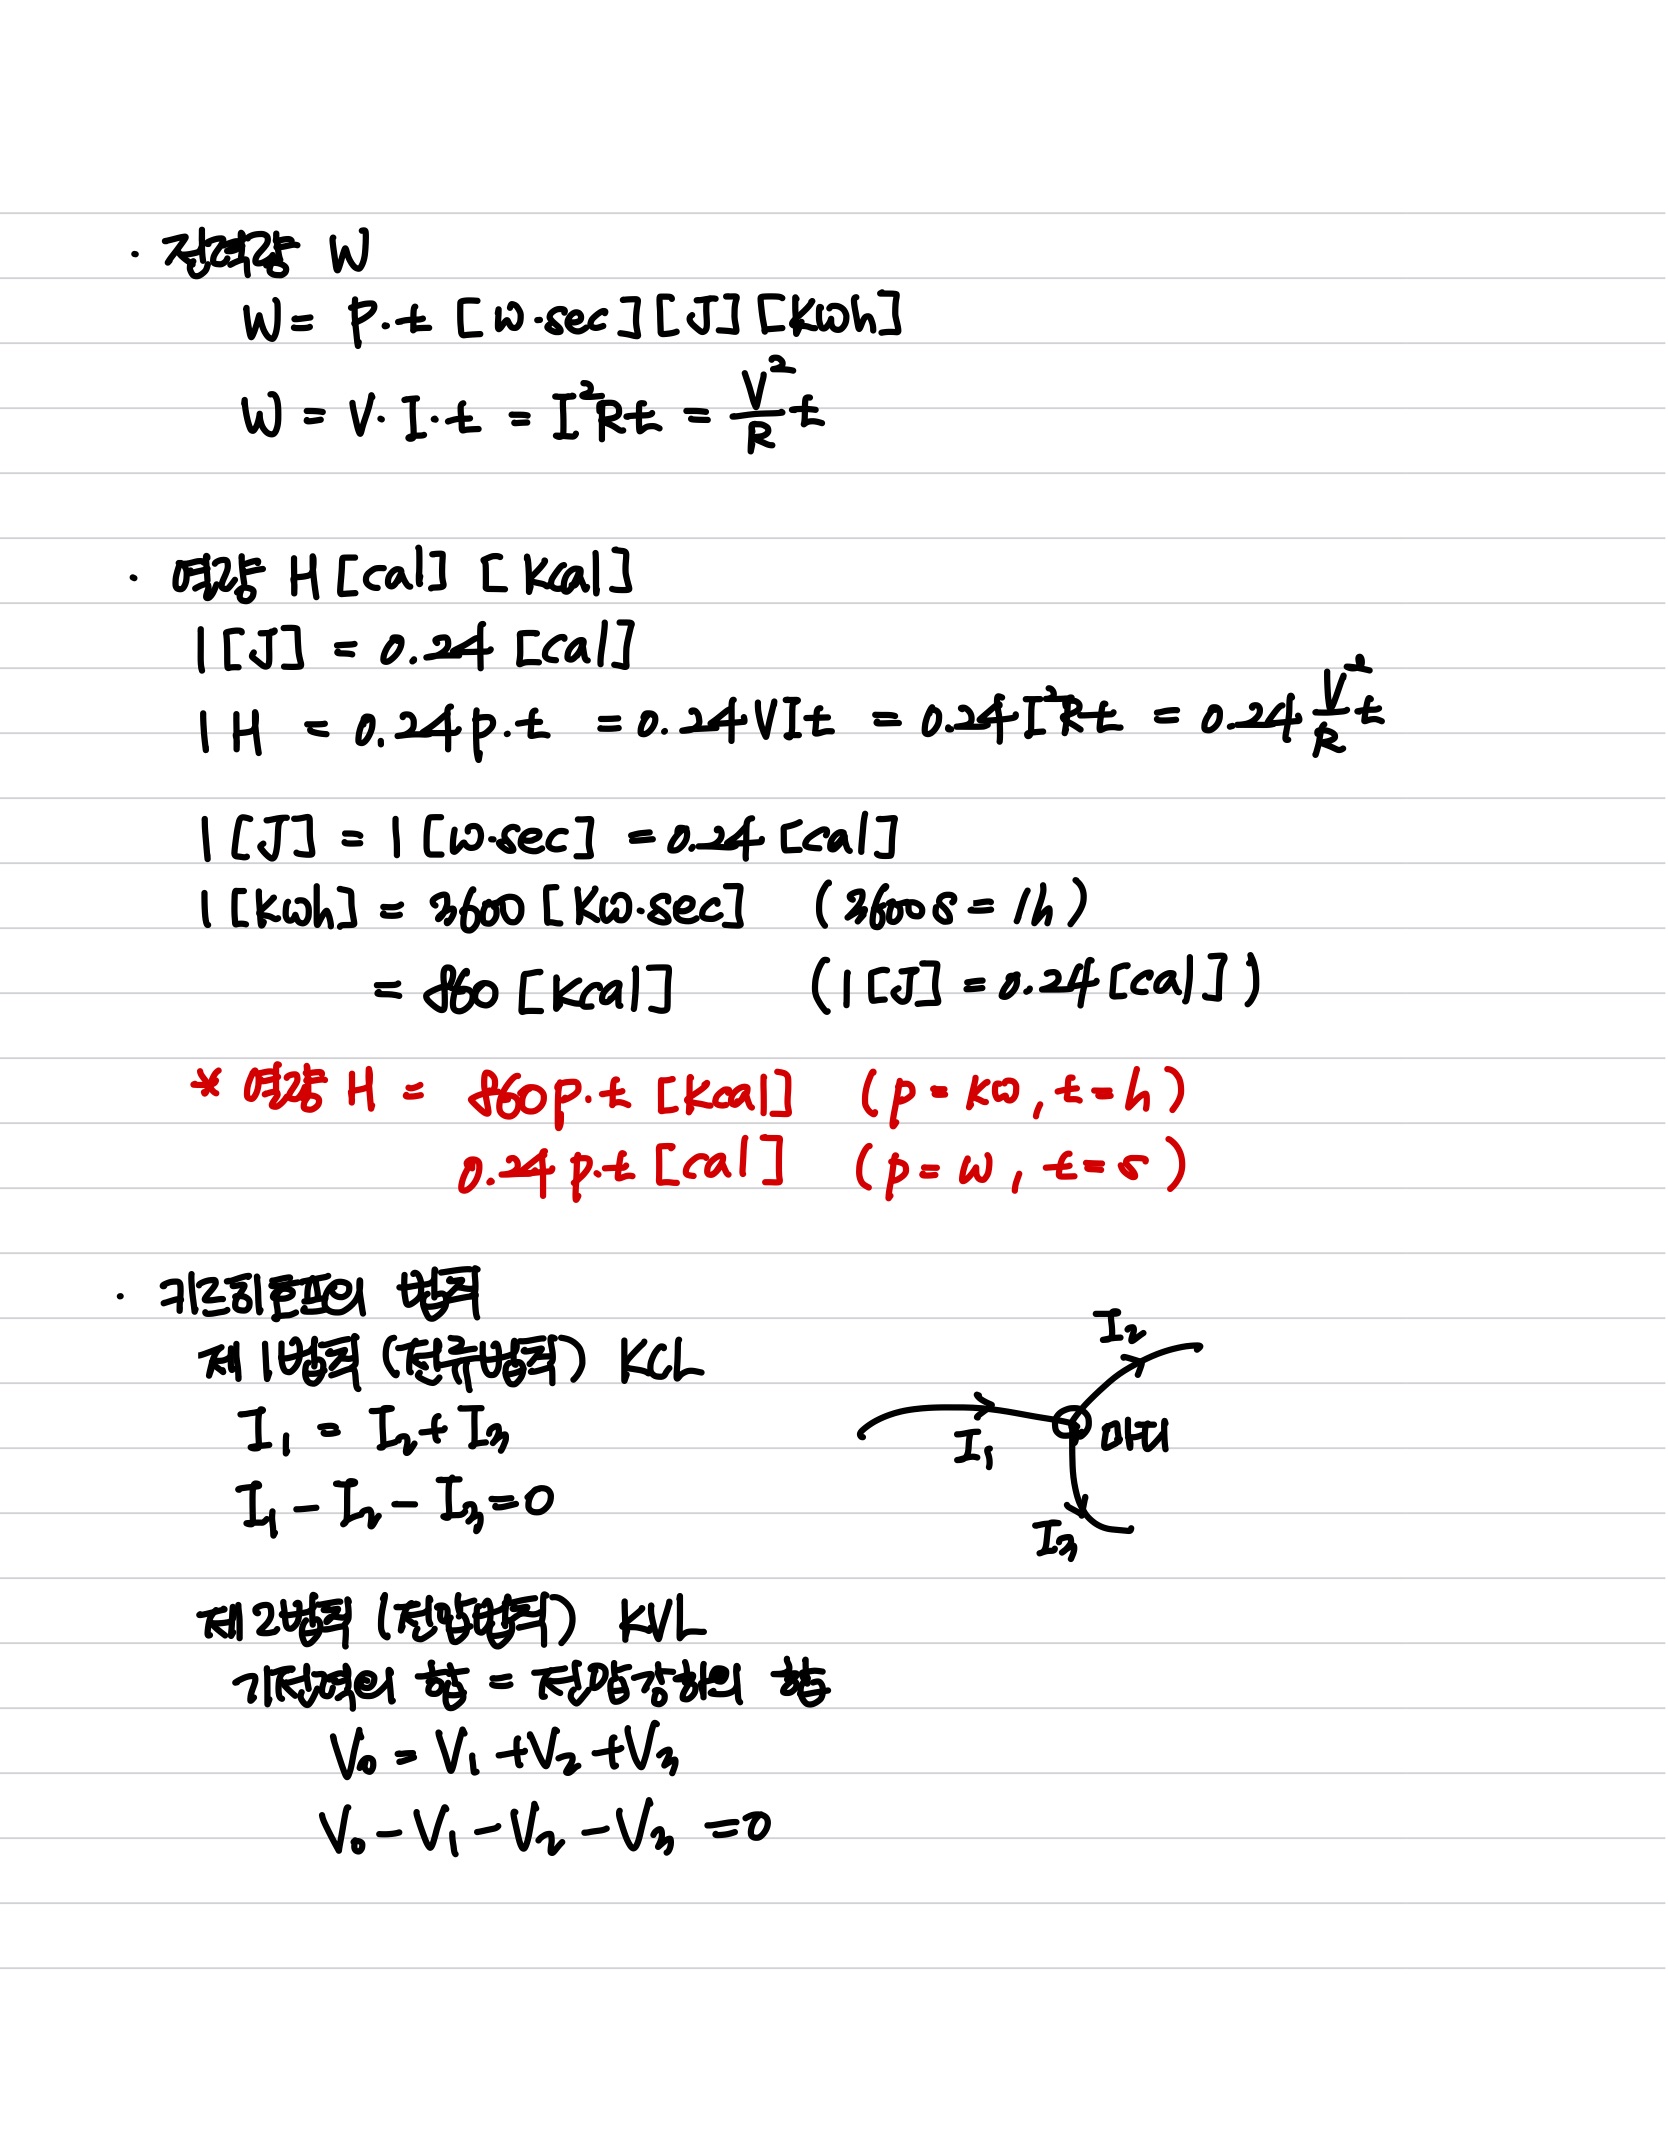 · 전력량 W
W = P·t [W·sec] [J] [Kwh]
W = V·I·t = I²Rt = V²/R t
· 열량 H [cal] [Kcal]
1 [J] = 0.24 [cal]
1 H = 0.24 p·t = 0.24 VIt = 0.24 I²Rt = 0.24 V²/R t
1 [J] = 1 [w·sec] = 0.24 [cal]
1 [kwh] = 3600 [Kw·sec] (3600s = 1h)
= 860 [kcal] (1 [J] = 0.24 [cal])
* 열량 H = 860 p·t [kcal] (p = kw, t = h)
0.24 p·t [cal] (p = w, t = s)
· 키르히호프의 법칙
제1법칙 (전류법칙) KCL
I₁ = I₂ + I₃
I₁ - I₂ - I₃ = 0
I₂
I₁
마디
I₃
제2법칙 (전압법칙) KVL
기전력의 합 = 전압강하의 합
V₀ = V₁ + V₂ + V₃
V₀ - V₁ - V₂ - V₃ = 0